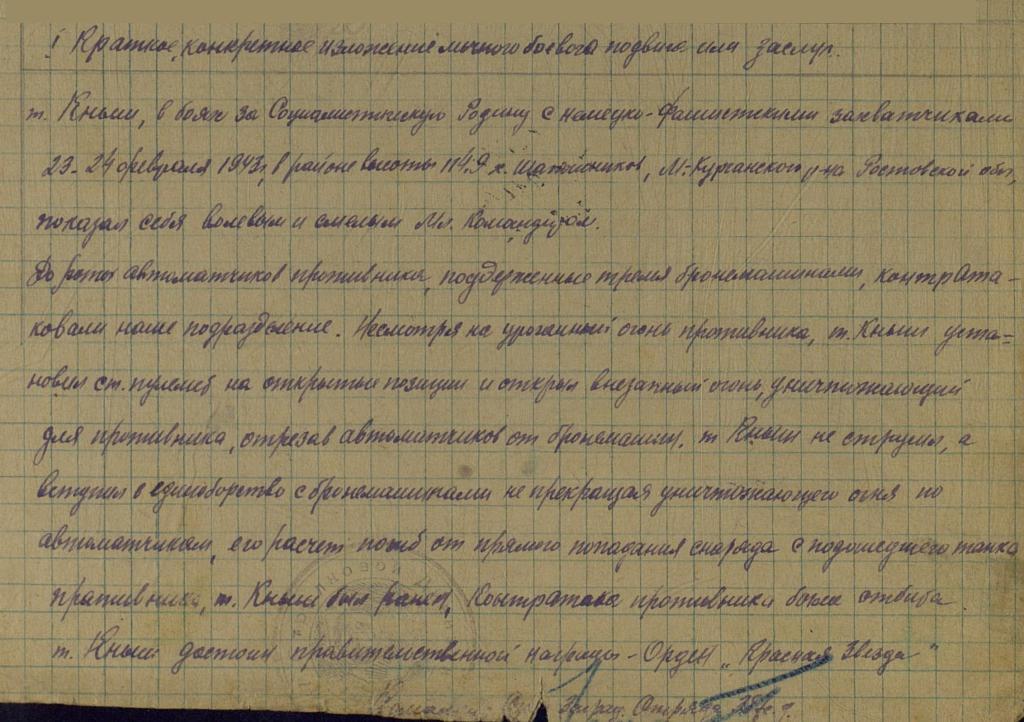 I Краткое, конкретное изложение личного боевого подвига или заслуг.
т. Кныш, в боях за Социалистическую Родину с немецко-Фашистскими захватчиками
23-24 февраля 1943г, в районе высоты 114.9 х. М-Курганского р-на Ростовской обл,
показал себя волевым и смелым Мл. Командиром.
До роты автоматчиков противника, поддерженные тремя бронемашинами, контрата-
ковали наше подразделение. Несмотря на ураганный огонь противника, т. Кныш уста=
новил ст. пулемет на открытые позиции и открыл внезапный огонь, уничтожающий
для противника, отрезав автоматчиков от бронемашин. т Кныш не струсил, а
вступил в единоборство с бронемашинами не прекращая уничтожающего огня по
автоматчикам, его расчет погиб от прямого попадания снаряда с подошедшего танка
противника, т. Кныш был ранен, Контратака противника была отбита.
т. Кныш достоин правительственной награды - Орден „Красная Звезда"